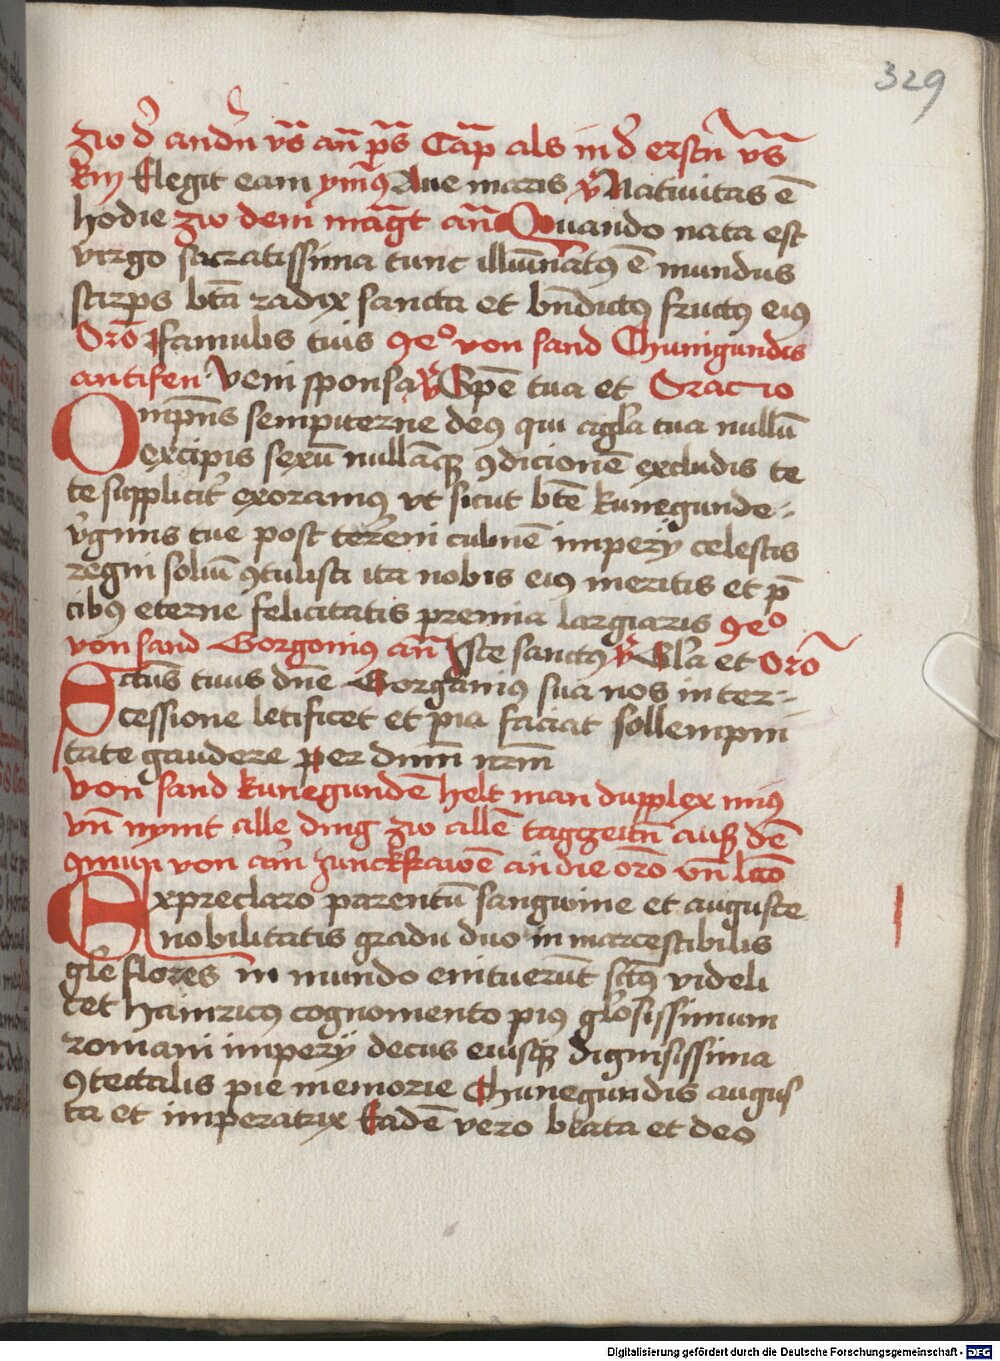 329
zw d̄ andn̄ vs̄ an̄ ps̄ Cap̄ als in d̄ erstn̄ vs̄
km Elegit eam ymꝰ Aue maris v̄ Natiuitas ē
hodie zw dem mag̅t an̄ Quando nata est
virgo sacratissima tunc illūnatꝰ ē mundus
stirps bt̄a radix sancta et bn̄dictꝰ fructꝰ eiꝰ
Orō famulis tuis ꝯeo von sand Chunigundis
antifen Veni sponsa v̄ Spē tua et Oracio
Omp̄ns sempiterne deꝰ qui ad gl̄a tua nullū
excipis sexū nullāqꝫ ꝯdicionē excludis te
te supplicit̄ exoramꝰ vt sicut btē kunegunde
v̄ginis tue post terreni culmē impery celestis
regni soliū ꝯtulisti ita nobis eiꝰ meritis et p̄
cibꝰ eterne felicitatis premia largiaris ꝯeo
von sand Gorgoniꝰ an̄ Iste sanctꝰ v̄ Gl̄a et Orō
Sctūs tuus dn̄e Gorganiꝰ sua nos inter
cessione letificet et pia faciat sollempni
tate gaudere per dnm̄ nrm̄
von sand kunegundē helt man dupplex miꝰ
vn̄ nymt alle ding zw allē tagzeitn̄ auß dē
ꝯmun von ain̄ junckfrawē an die orō vn̄ lcō
Ex preclaro parentū sangwine et auguste
nobilitatis gradu duo in marcestibilis
gl̄e flores in mundo enituerūt sctꝰ videli
cet Hainricꝰ cognomento piꝰ gl̄osissimum
romani impery decus eiusqꝫ dignisissima
ꝯtectalis pie memorie Chunegundis augus
ta et imperatrix Eadē vero beata et deo
Digitalisierung gefördert durch die Deutsche Forschungsgemeinschaft - DFG